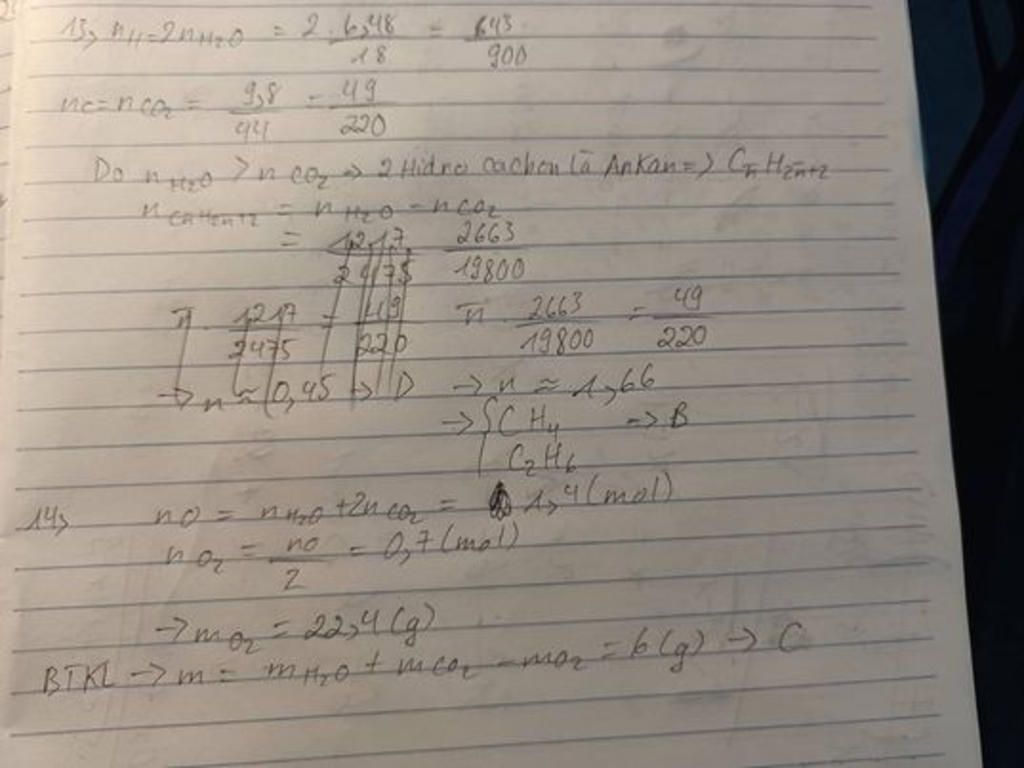 13, nH = 2nH₂O = 2 . 6,48/18 = 643/900
nC = nCO₂ = 9,8/44 = 49/220
Do nH₂O > nCO₂ → 2 Hidro cacbon là Ankan => Cn̄H2n̄+2
nCnH2n+2 = nH₂O - nCO₂
= 1217/2475 2663/19800
n̄ . 1217/2475 = 49/220 n̄ . 2663/19800 = 49/220
→ n ≈ 0,45 → D → n ≈ 1,66
→ { CH₄ → B
C₂H₆
14, nO = nH₂O + 2nCO₂ = 1,4 (mol)
nO₂ = nO/2 = 0,7 (mol)
→ mO₂ = 22,4 (g)
BTKL → m = mH₂O + mCO₂ - mO₂ = 6 (g) → C